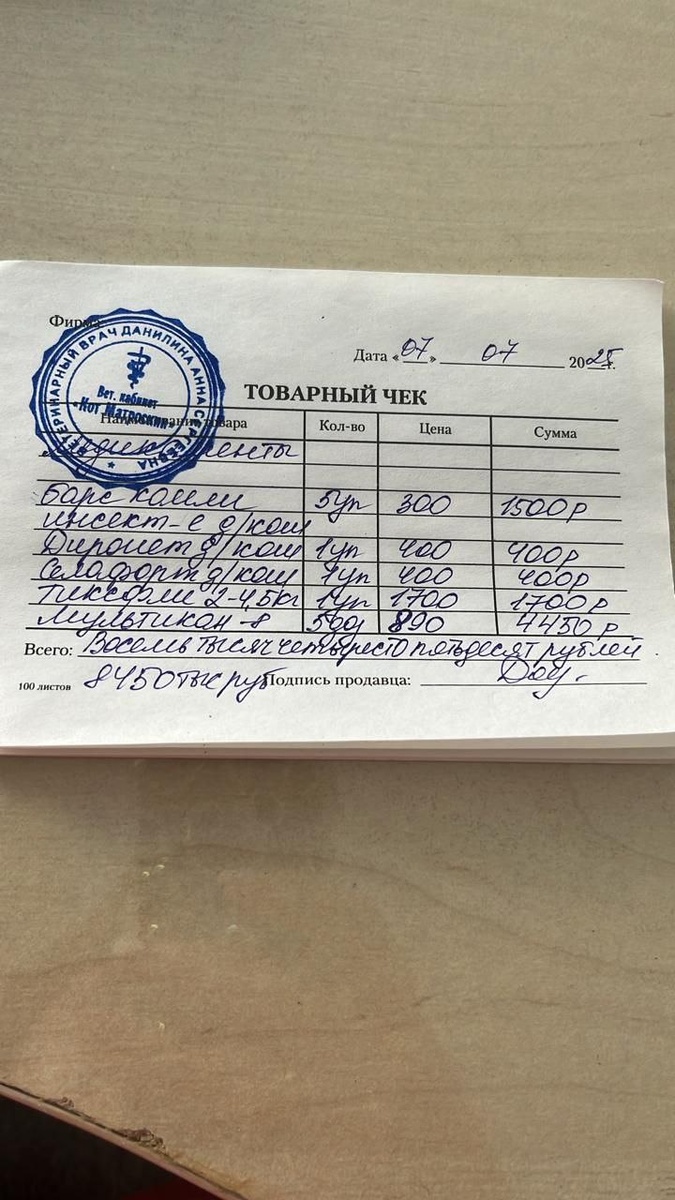 Фирма
ВЕТЕРИНАРНЫЙ ВРАЧ ДАНИЛИНА АННА СЕРГЕЕВНА
Вет. кабинет
«Кот Матроскин»
Дата «07» 07 2025г.
ТОВАРНЫЙ ЧЕК
Наименование товара Кол-во Цена Сумма
Медикаменты
Барс капли 5уп 300 1500р
инсект-е д/кош
Диронет д/кош 1уп 400 400р
Селафорт д/кош 1уп 400 400р
2-4,5кг 1уп 1700 1700р
Мультикан-8 5доз 890 4450р
Всего: Восемь тысяч четыресто пятьдесят рублей
100 листов 8450тыс руб Подпись продавца: